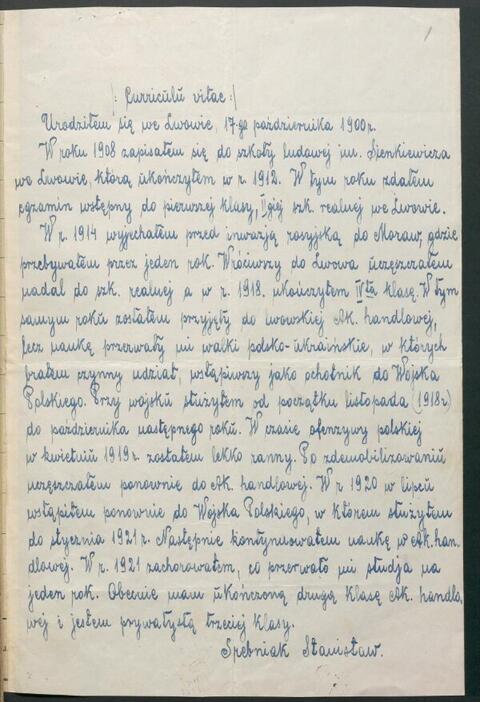 1
/: Curriculu vitae :/
Urodziłem się we Lwowie, 17-go października 1900 r.
W roku 1908 zapisałem się do szkoły ludowej im. Sienkiewicza
we Lwowie, którą ukończyłem w r. 1912. W tym roku zdałem
egzamin wstępny do pierwszej klasy, IIgiej szk. realnej we Lwowie.
W r. 1914 wyjechałem przed inwazją rosyjską do Moraw, gdzie
przebywałem przez jeden rok. Wróciwszy do Lwowa uczęszczałem
nadal do szk. realnej a w r. 1918. ukończyłem IVtą klasę. W tym
samym roku zostałem przyjęty do lwowskiej Ak. handlowej,
lecz naukę przerwały mi walki polsko-ukraińskie, w których
brałem czynny udział, wstąpiwszy jako ochotnik do Wojska
Polskiego. Przy wojsku służyłem od początku listopada (1918 r)
do października następnego roku. W czasie ofenzywy polskiej
w kwietniu 1919 r. zostałem lekko ranny. Po zdemobilizowaniu
uczęszczałem ponownie do Ak. handlowej. W r. 1920 w lipcu
wstąpiłem ponownie do Wojska Polskiego, w którem służyłem
do stycznia 1921 r. Następnie kontynuowałem naukę w Ak. han-
dlowej. W r. 1921 zachorowałem, co przerwało mi studja na
jeden rok. Obecnie mam ukończoną drugą klasę Ak. handlo,
wej i jestem prywatystą trzeciej klasy.
Stanisław.